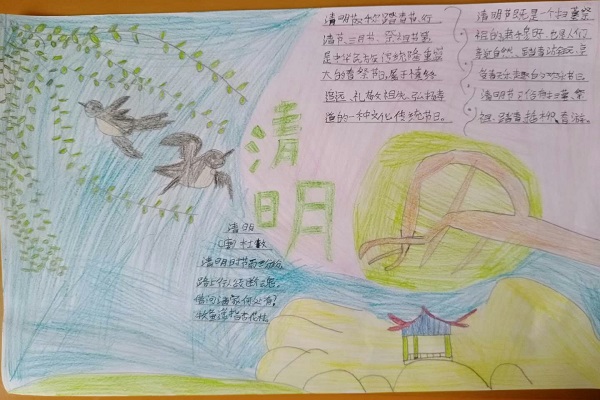 清明节又称踏青节、行
清节、三月节、祭祖节等
是中华民族传统隆重盛
大的春祭节日,属于慎终
追远、礼敬祖先、弘扬孝
道的一种文化传统节日。
清明节既是一个扫墓祭
祖的肃穆节日,也是人们
亲近自然、踏青游玩、享
受春天乐趣的欢乐节日。
清明节习俗有扫墓、祭
祖、踏青、插柳、春游。
清
明
清明
(唐)杜牧
清明时节雨纷纷,
路上行人欲断魂。
借问酒家何处有?
牧童遥指杏花村。